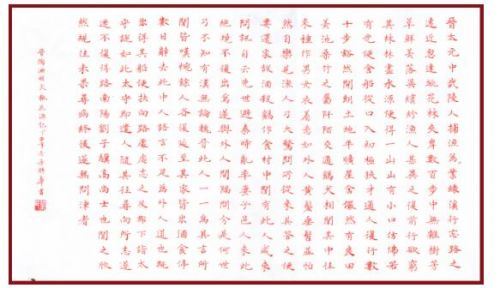 晉太元中武陵人捕漁為業緣溪行忘路之
遠近忽逢桃花林夾岸數百步中無雜樹芳
草鮮美落英繽紛漁人甚異之復前行欲窮
其林林盡水源便得一山山有小口仿佛若
有光便舍船從口入初極狹才通人復行數
十步豁然開朗土地平曠屋舍儼然有良田
美池桑竹之屬阡陌交通雞犬相聞其中往
來種作男女衣著悉如外人黃髮垂髫並怡
然自樂見漁人乃大驚問所從來具答之便
要還家設酒殺雞作食村中聞有此人咸來
問訊自云先世避秦時亂率妻子邑人來此
絕境不復出焉遂與外人間隔問今是何世
乃不知有漢無論魏晉此人一一為具言所
聞皆嘆惋餘人各復延至其家皆出酒食停
數日辭去此中人語言不足為外人道也既
出得其船便扶向路處處志之及郡下詣太
守說如此太守即遣人隨其往尋向所志遂
迷不復得路南陽劉子驥高尚士也聞之欣
然規往未果尋病終後遂無問津者
晉陶淵明文桃花源記